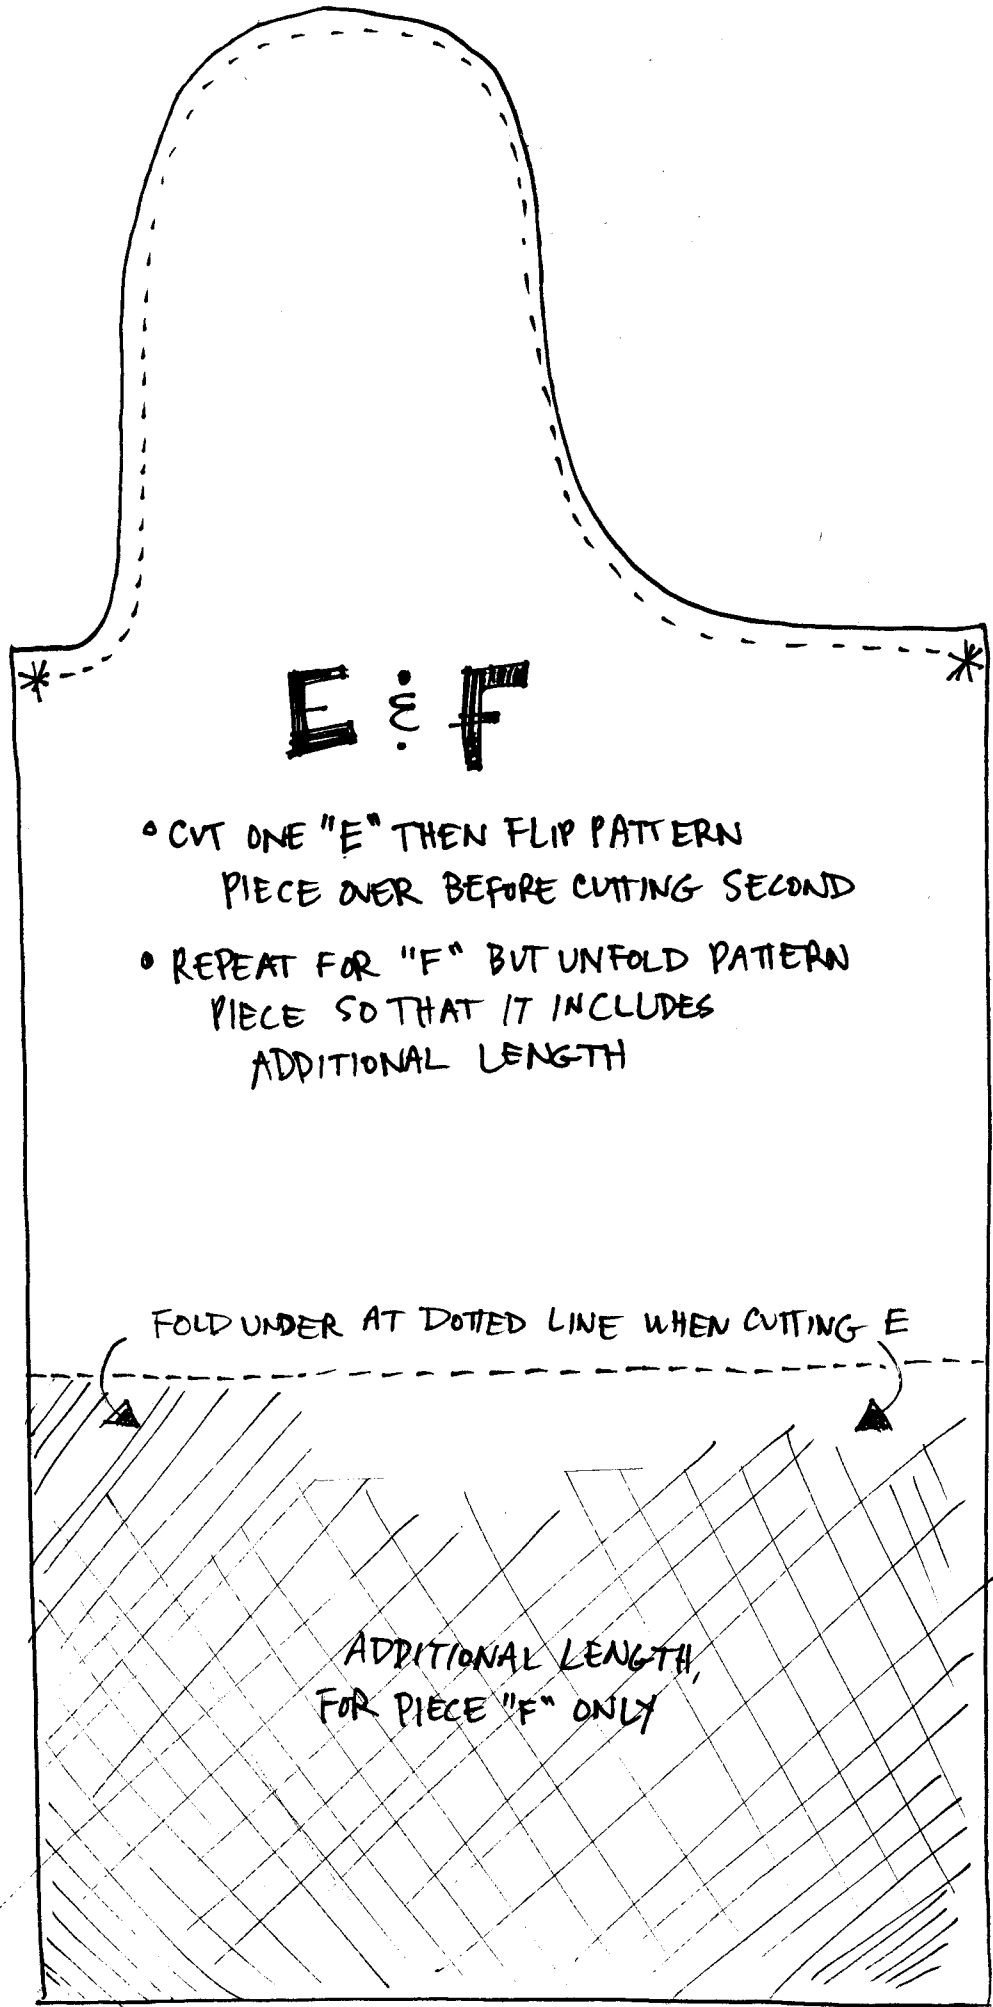 E & F
• CUT ONE "E" THEN FLIP PATTERN
PIECE OVER BEFORE CUTTING SECOND
• REPEAT FOR "F" BUT UNFOLD PATTERN
PIECE SO THAT IT INCLUDES
ADDITIONAL LENGTH
FOLD UNDER AT DOTTED LINE WHEN CUTTING E
ADDITIONAL LENGTH,
FOR PIECE "F" ONLY